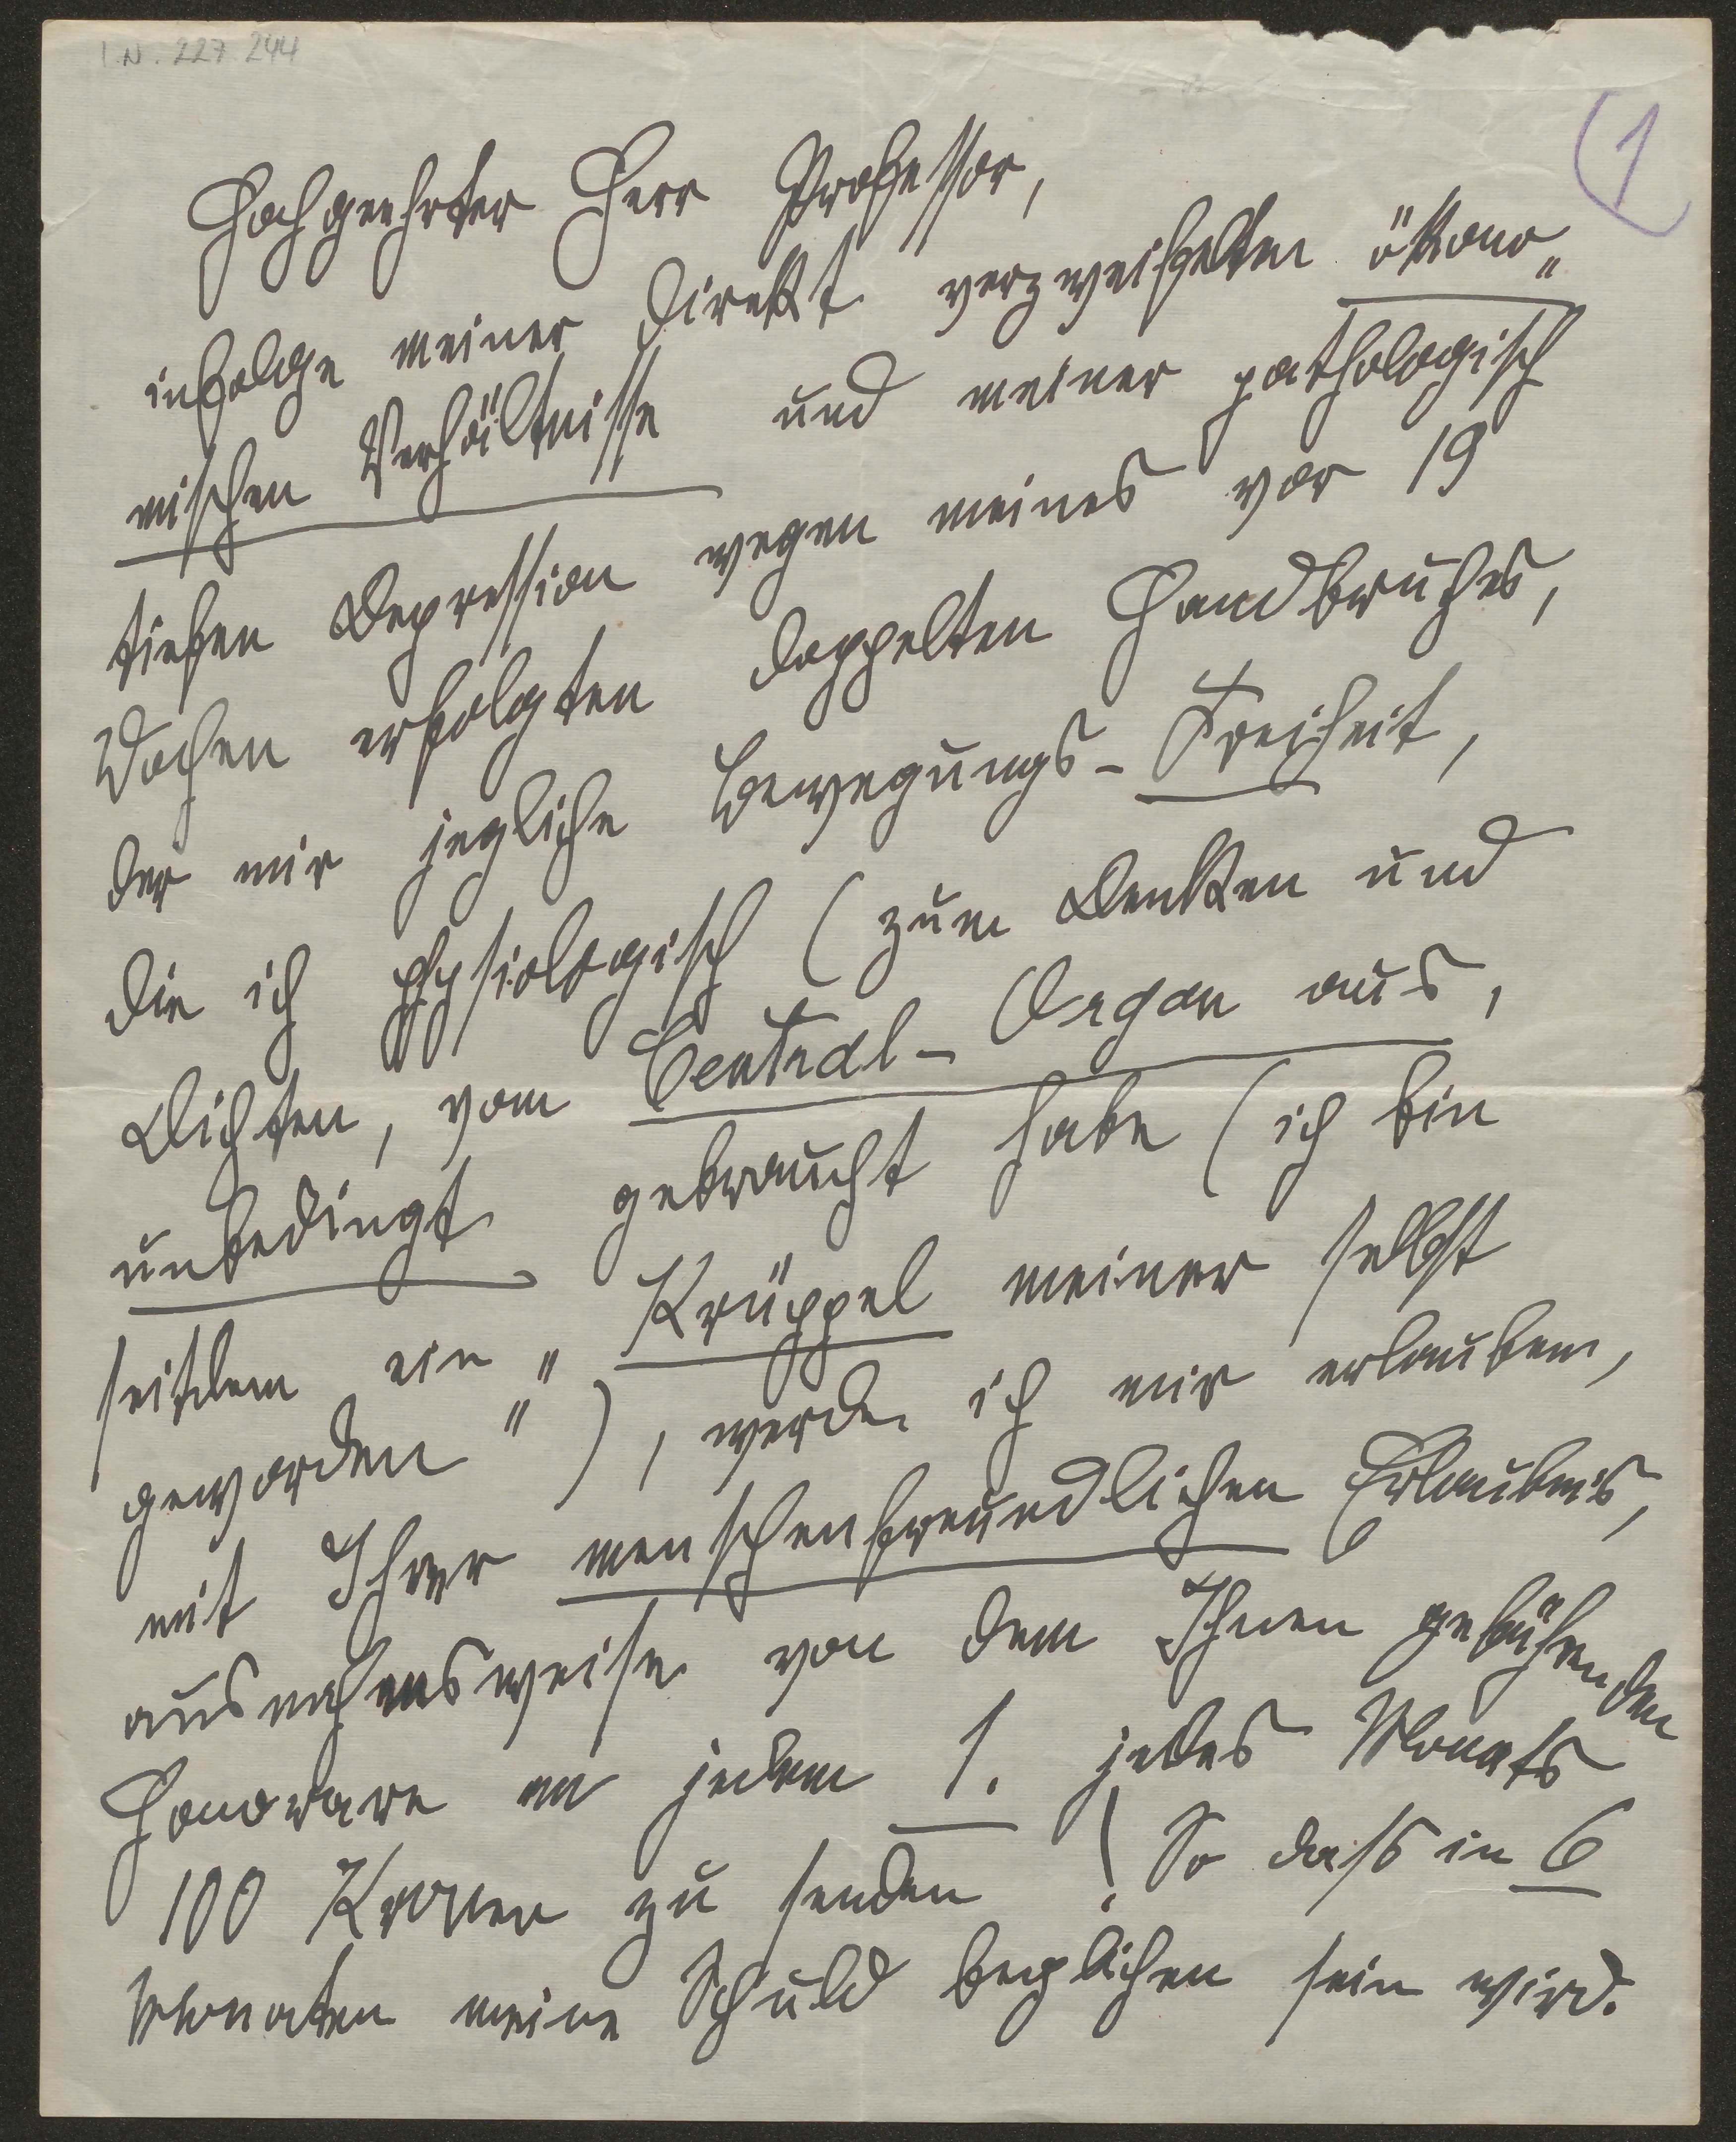 I.N. 227 244
(1
Hochgeehrter Herr Professor,
infolge meiner direkt verzweifelten ökono„
mischen Verhältnisse und meiner pathologisch
tiefen Depression wegen meines vor 19
Wochen erfolgten doppelten Handbruches,
der mir jegliche Bewegungs-Freiheit,
die ich physiologisch (zum Denken und
Dichten, vom Central-Organ aus,
unbedingt gebraucht habe (ich bin
seitdem ein „Krüppel meiner selbst
geworden“), werde ich mir erlauben,
mit Ihrer menschenfreundlichen Erlaubnis,
ausnahmsweise von dem Ihnen gebührenden
Honorare an jedem 1. jedes Monats
100 Kronen zu senden! So dass in 6
Monaten meine Schuld beglichen sein wird.